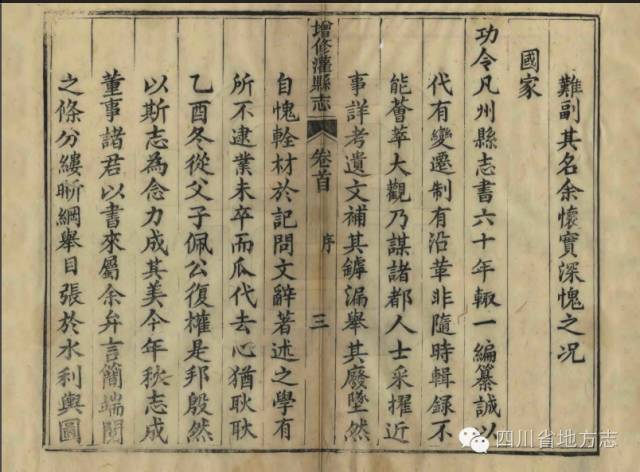 難副其名余懷實深愧之况
國家
功令凡州縣志書六十年輙一編纂誠以
代有變遷制有沿革非隨時輯録不
能薈萃大觀乃謀諸都人士采擢近
事詳考遺文補其罅漏舉其廢墜然
增修灌縣志
卷首
序
三
自愧輇材於記問文辭著述之學有
所不逮業未卒而瓜代去心猶耿耿
乙酉冬從父子佩公復權是邦殷然
以斯志為念力成其美今年秋志成
董事諸君以書來屬余弁言簡端閱
之條分縷晣綱舉目張於水利輿圖
四川省地方志